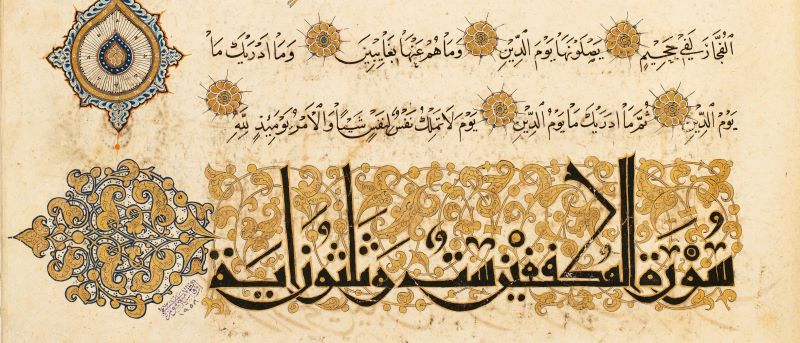 الفُجَّارَ لَفِي جَحِيمٍ يَصْلَوْنَهَا يَوْمَ الدِّينِ وَمَا هُمْ عَنْهَا بِغَايِبِينَ وَمَا أَدْرَيكَ مَا
يَوْمُ الدِّينِ ثُمَّ مَا أَدْرَيكَ مَا يَوْمُ الدِّينِ يَوْمَ لَا تَمْلِكُ نَفْسٌ لِنَفْسٍ شَيْئًا وَالْأَمْرُ يَوْمَئِذٍ لِلَّهِ
سُورَةُ الْمُطَفِّفِينَ سِتٌّ وَثَلَثُونَ اٰيَة